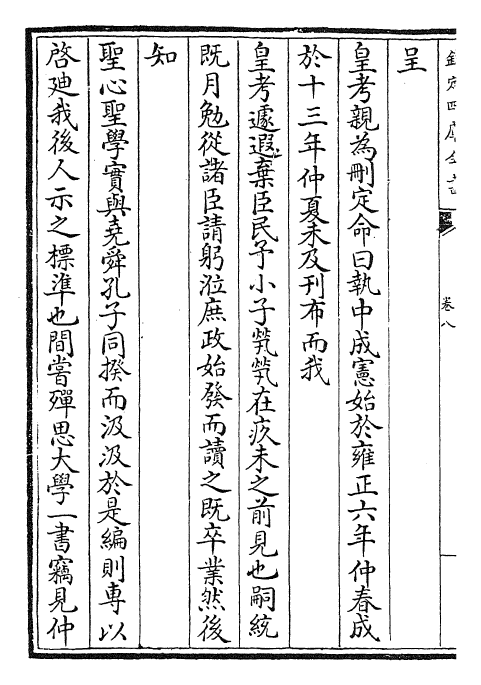 欽定四庫全書
卷八
呈
皇考親為刪定命曰執中成憲始於雍正六年仲春成
於十三年仲夏未及刊布而我
皇考遽遐棄臣民予小子煢煢在疚未之前見也嗣統
既月勉從諸臣請躬涖庶政始發而讀之既卒業然後
知
聖心聖學實與堯舜孔子同揆而汲汲於是編則専以
啓廸我後人示之標準也間嘗殫思大學一書竊見仲